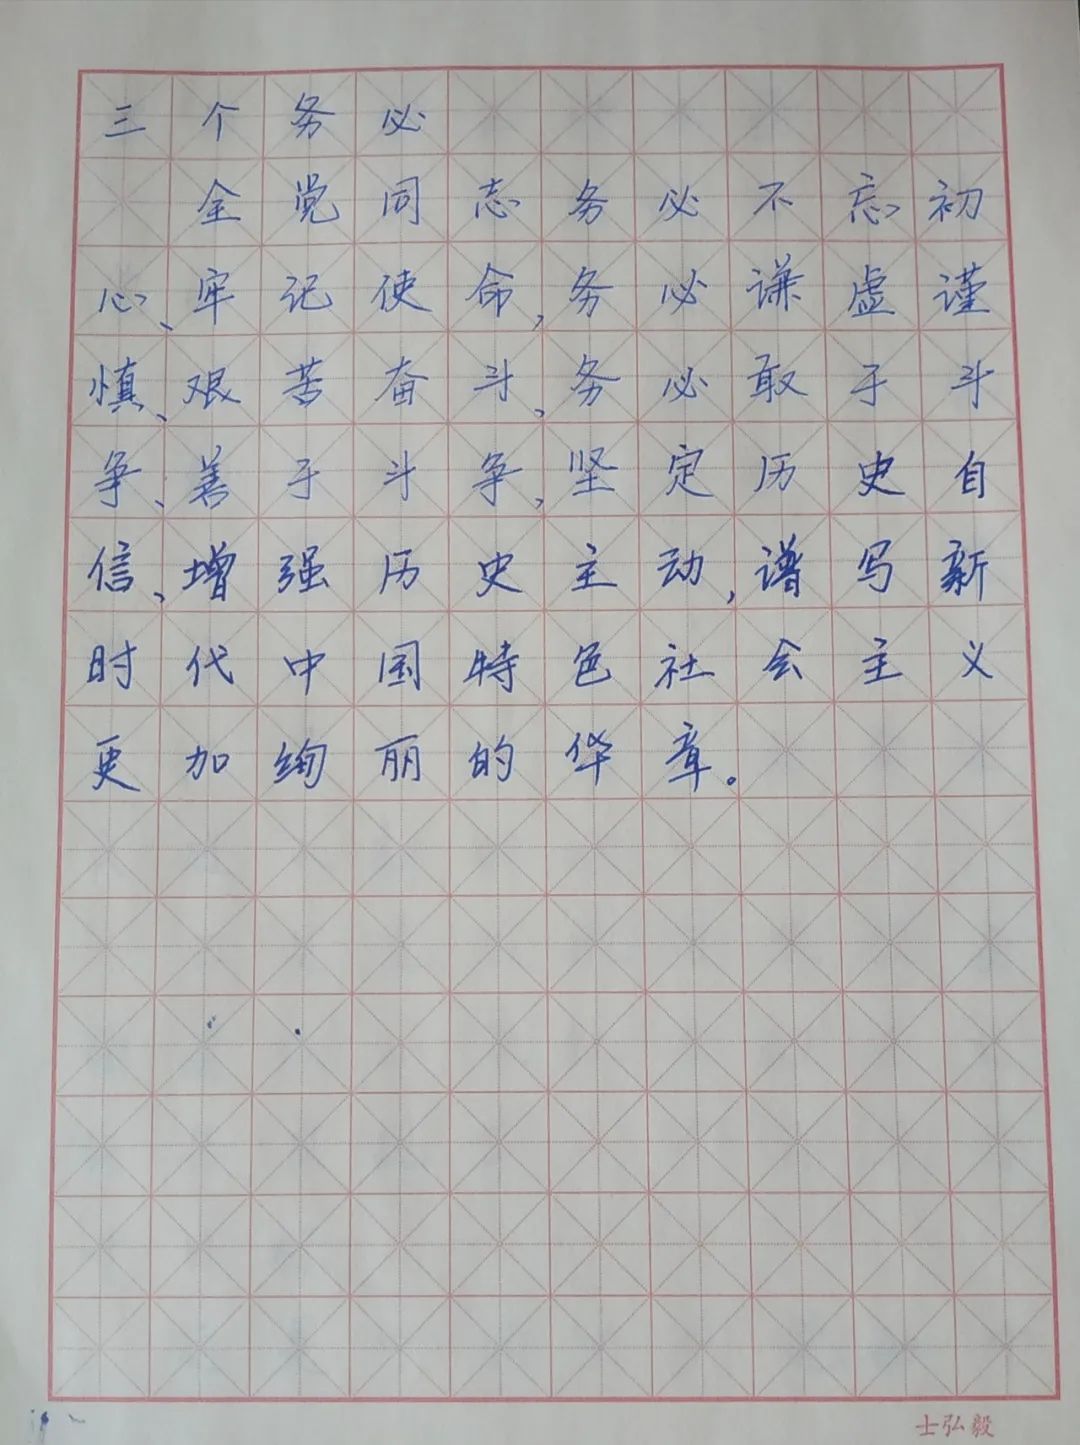 三个务必
全党同志务必不忘初
心、牢记使命,务必谦虚谨
慎、艰苦奋斗,务必敢于斗
争、善于斗争,坚定历史自
信、增强历史主动,谱写新
时代中国特色社会主义
更加绚丽的华章。
士弘毅